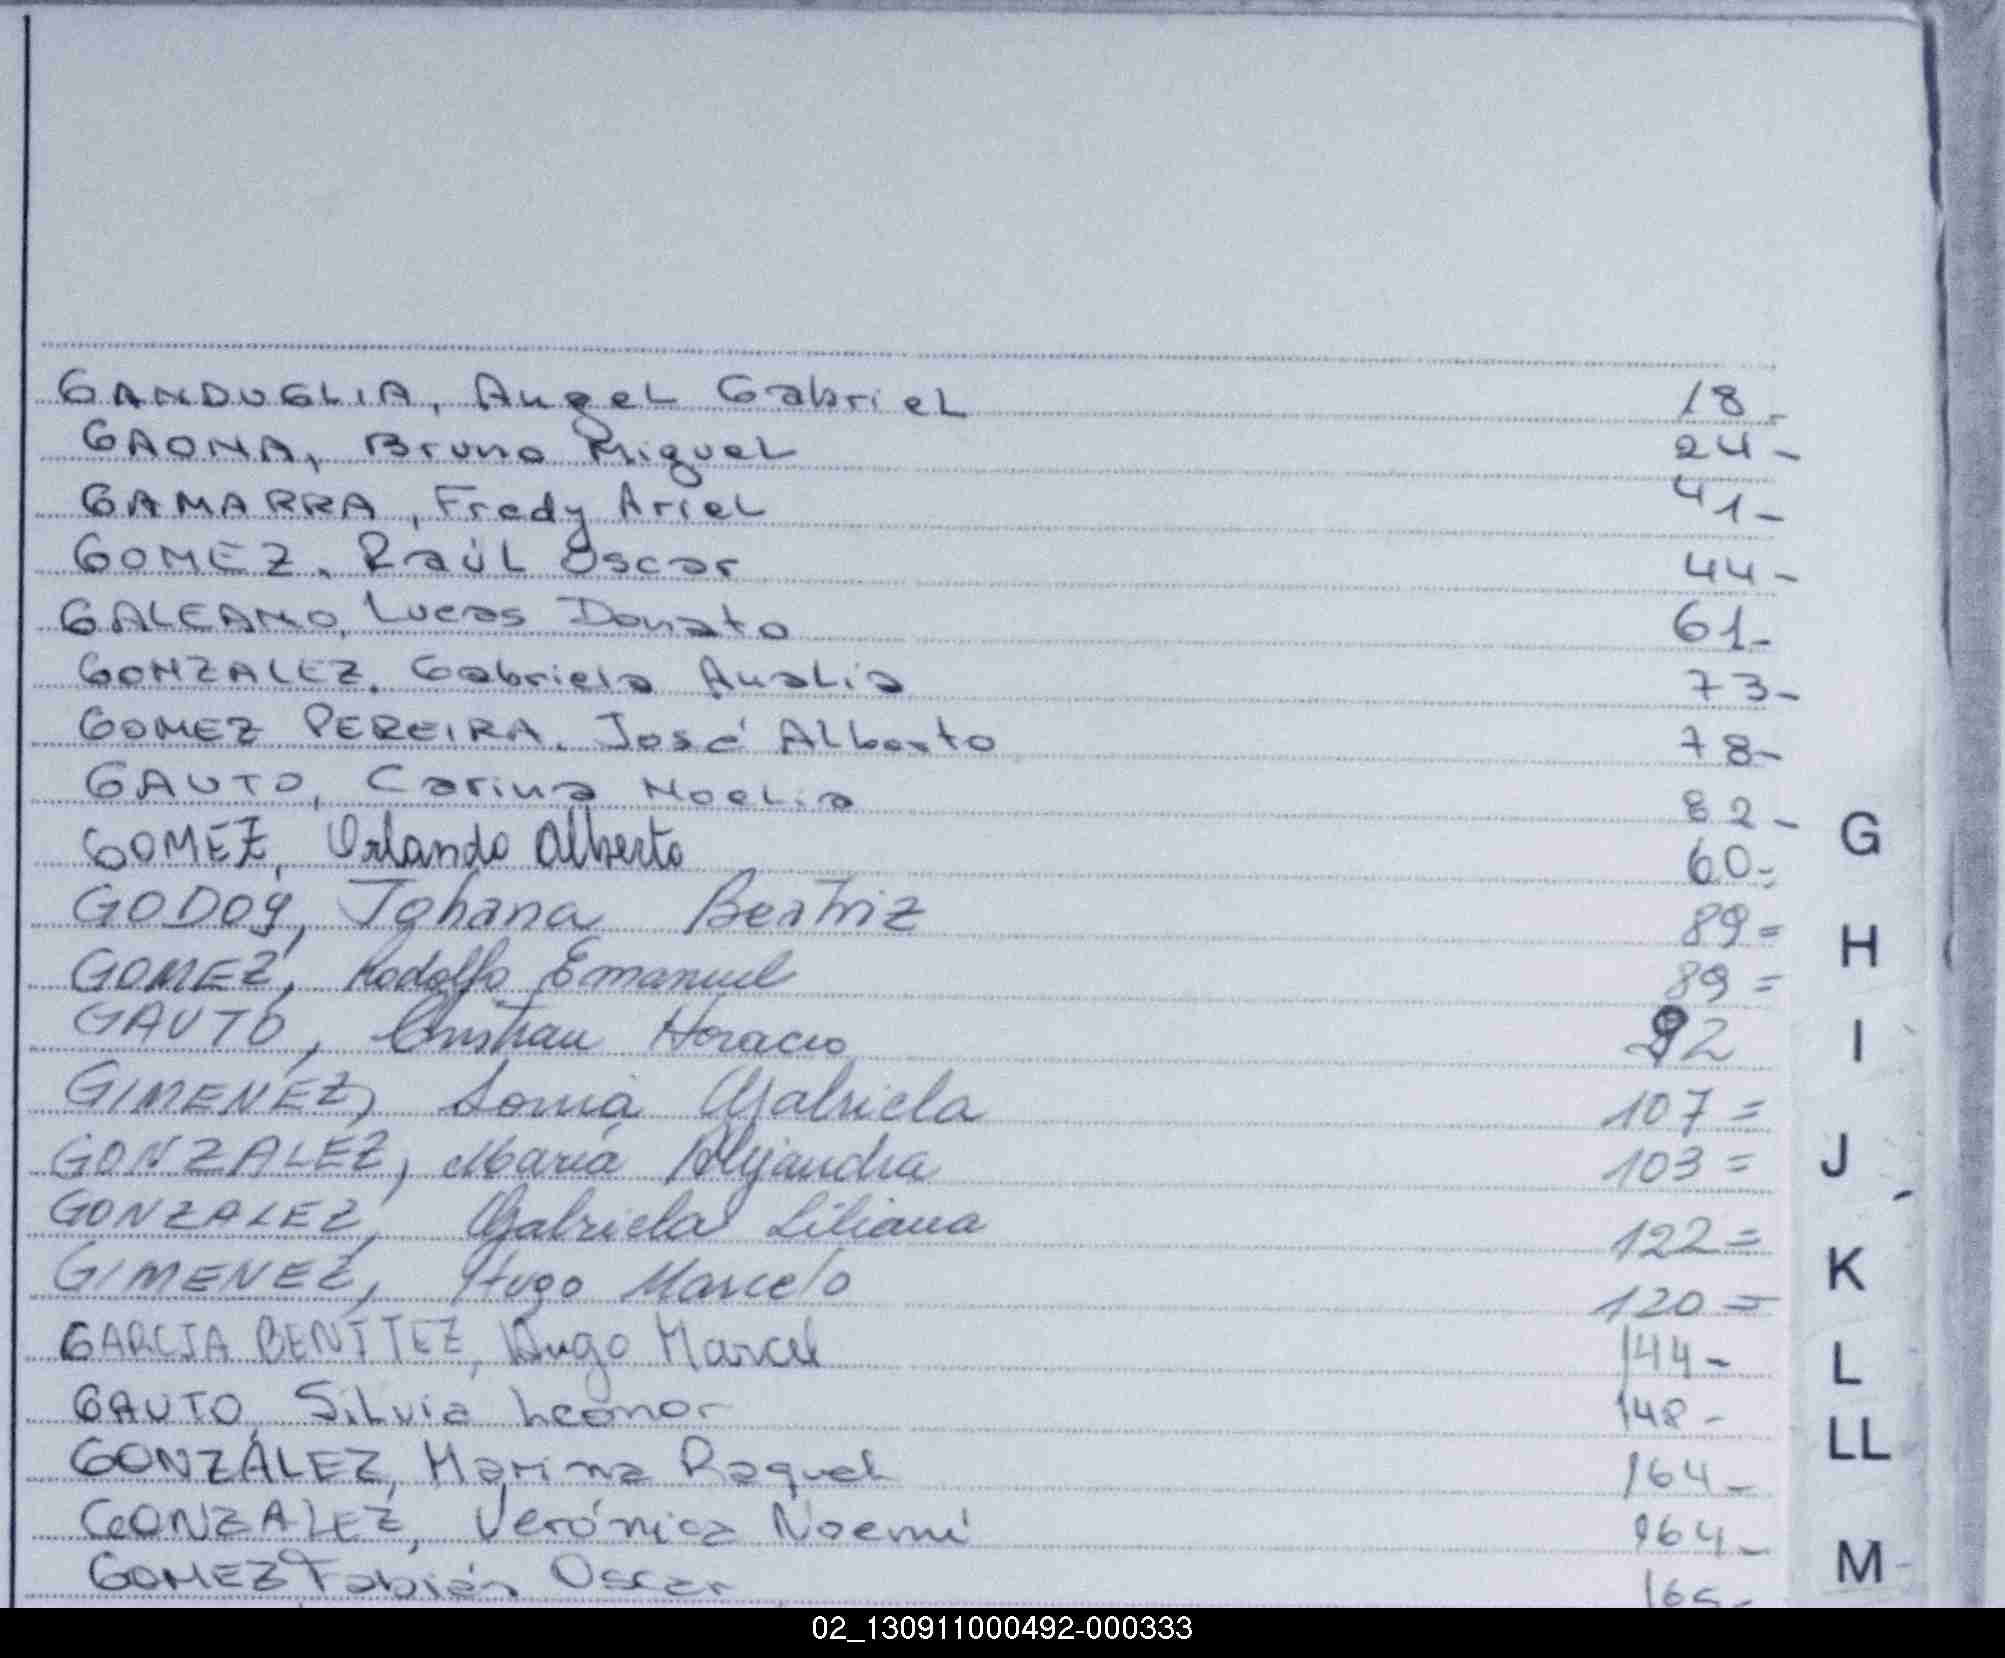 GANDUGLIA, Angel Gabriel 18-
GAONA, Bruno Miguel 24-
GAMARRA, Fredy Ariel 41-
GOMEZ, Raúl Oscar 44-
GALEANO, Lucas Donato 61-
GONZALEZ, Gabriela Analia 73-
GOMEZ PEREIRA, José Alberto 78-
GAUTO, Carina Noelia 82-
GOMEZ, Orlando Alberto 60=
GODOY, Johana Beatriz 89=
GOMEZ, Rodolfo Emanuel 89=
GAUTO, Cristian Horacio 92
GIMENEZ, Sonia Gabriela 107=
GONZALEZ, María Alejandra 103=
GONZALEZ, Gabriela Liliana 122=
GIMENEZ, Hugo Marcelo 120=
GARCIA BENITEZ, Hugo Marcel 144-
GAUTO, Silvia Leonor 148-
GONZÁLEZ, Marina Raquel 164-
GONZALEZ, Verónica Noemí 164-
GOMEZ Fabián Oscar
G
H
I
J
K
L
LL
M
02_130911000492-000333